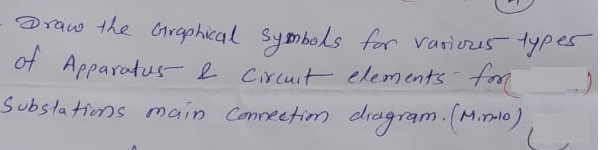 Draw the Graphical Symbols for various types
of Apparatus & Circuit elements for( )
Substations main Connection diagram. (Min-10)